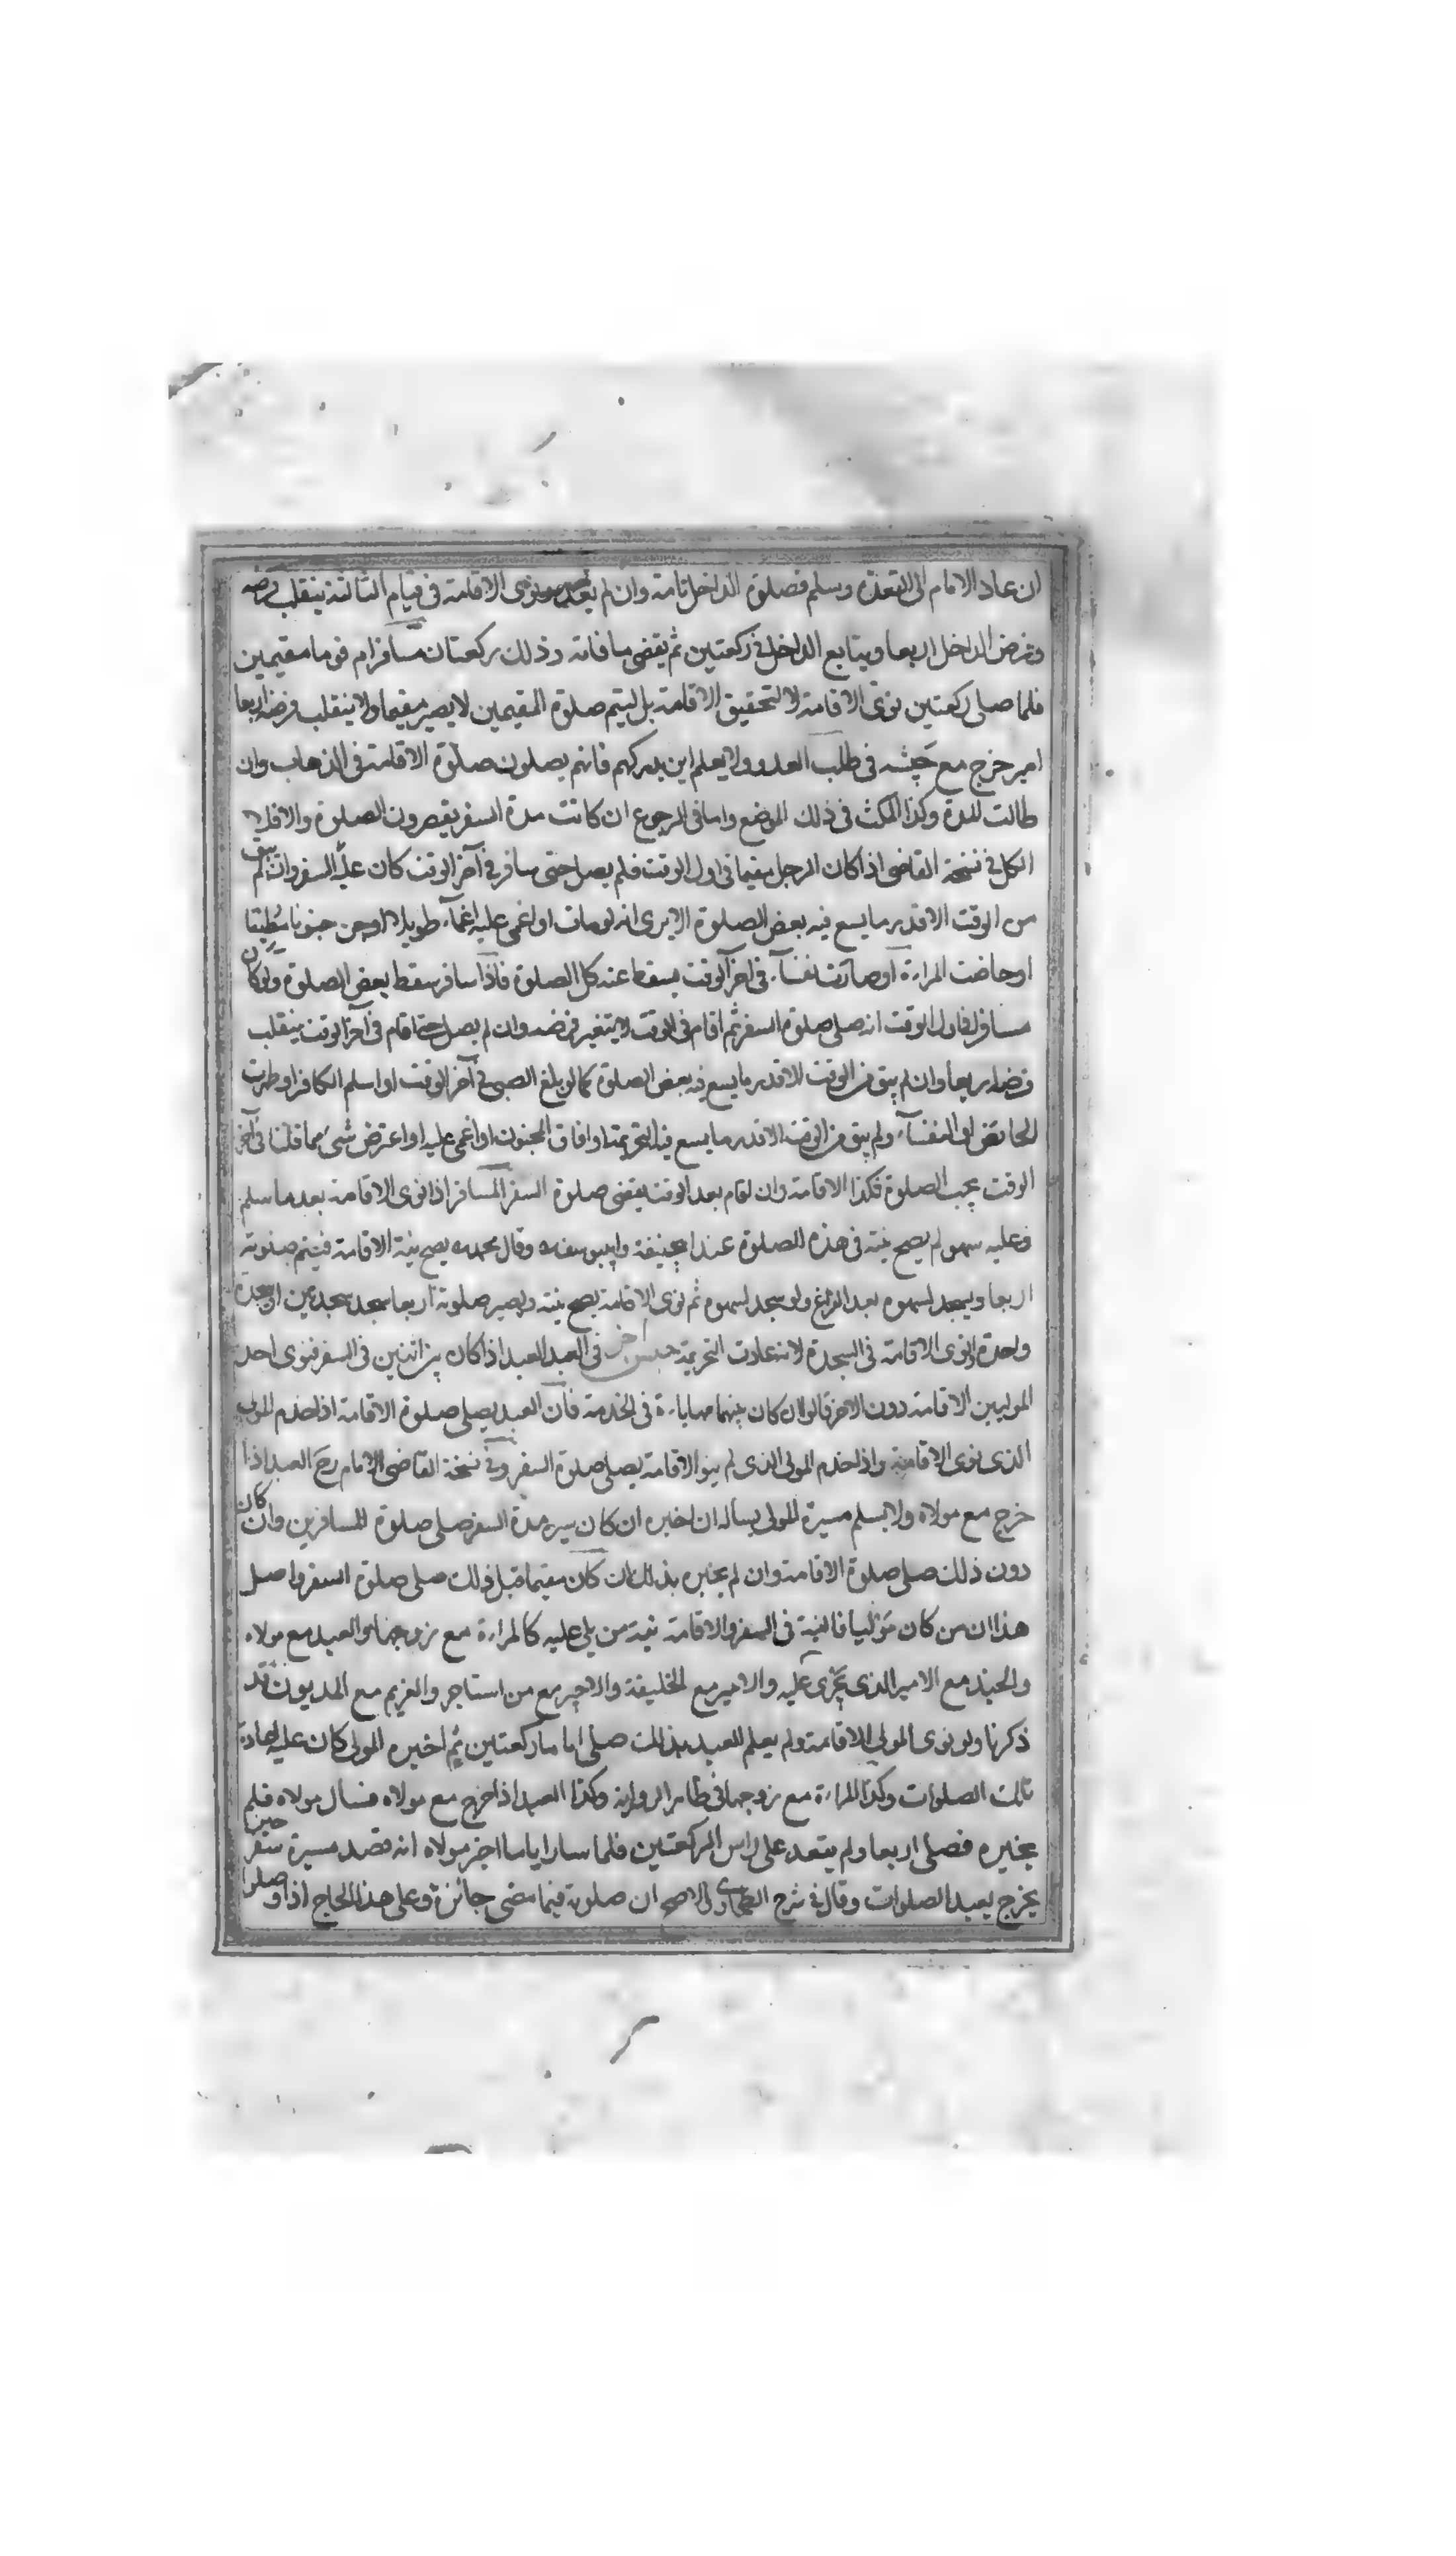 ان عاد الامام الى القعدة وسلم فصلوة الداخل تامة وان لم يعد ونوى الاقامة فى قيام الثالثة ينقلب فرضه
وفرض الداخل اربعا ويتابع الداخل فى ركعتين ثم يقضى ما فاته وذلك ركعتان مسافر ام قوما مقيمين
فلما صلى ركعتين نوى الاقامة لا لتحقيق الاقامة بل ليتم صلوة المقيمين لا يصير مقيما ولا ينقلب فرضه اربعا
امير خرج مع جيشه فى طلب العدو ولا يعلم اين يدركهم فانهم يصلون صلوة الاقامة فى الذهاب وان
طالت المدة وكذا المكث فى ذلك الموضع واما فى الرجوع ان كانت مدة السفر يقصرون الصلوة والا فلا
الكل فى نسخة القاضى اذا كان الرجل مقيما فى اول الوقت فلم يصل حتى سافر فى آخر الوقت كان عليه السفر وان لم يبق
من الوقت الا قدر ما يسع فيه بعض الصلوة الا يرى انه لو مات او اغمى عليه اغمآء طويلا او جن جنونا مطبقا
او حاضت المراءة او صارت نفسآء فى اخر الوقت يسقط عنه كل الصلوة فاذا سافر سقط بعض الصلوة ولو كان
مسافرا فى اول الوقت ان صلى صلوة السفر ثم اقام فى الوقت لا يتغير فرضه وان لم يصل حتى اقام فى آخر الوقت ينقلب
فرضه اربعا وان لم يبق من الوقت الا قدر ما يسع فيه بعض الصلوة كما لو بلغ الصبى فى آخر الوقت او اسلم الكافر او طهرت
الحائض او النفسآء ولم يبق من الوقت الا قدر ما يسع فيه التحريمة او افاق المجنون او اغمى عليه او اعترض شئ مما قلنا فى آخر
الوقت يجب الصلوة فكذا الاقامة وان اقام بعد الوقت يقضى صلوة السفر المسافر اذا نوى الاقامة بعد ما سلم
وعليه سهو لم يصح نيته فى هذه الصلوة عند ابيحنيفة وابييوسف وقال محمد يصح نية الاقامة فيتم صلوته
اربعا ويسجد لسهوه بعد الفراغ ولو سجد لسهوه ثم نوى الاقامة يصح نيته ويصير صلوته اربعا سجد سجدتين او سجدة
واحدة او نوى الاقامة فى السجدة لانه عادت التحريمة جنس اخر فى العبد العبد اذا كان بين اثنين فى السفر فنوى احد
الموليين الاقامة دون الاخر قالوا ان كان بينهما مهاباءة فى الخدمة فان العبد يصلى صلوة الاقامة اذا خدم المولى
الذى نوى الاقامة واذا خدم المولى الذى لم ينو الاقامة يصلى صلوة السفر وفى نسخة القاضى الامام رح العبد اذا
خرج مع مولاه ولا يسلم مسيرة المولى يساله ان اخبره ان كان سير مدة السفر صلى صلوة المسافرين وان كان
دون ذلك صلى صلوة الاقامة وان لم يخبره بذلك ان كان مقيما قبل ذلك صلى صلوة السفر واصل
هذا ان من كان موليا فالنية فى السفر والاقامة نية من يلى عليه كالمراءة مع زوجها والعبد مع مولاه
والجند مع الامير الذى يجرى عليه والامير مع الخليفة والاجير مع من استاجر والغريم مع المديون قد
ذكرنا ولو نوى المولى الاقامة ولم يعلم العبد بذلك صلى اياما ركعتين ثم اخبره المولى كان عليه اعادة
تلك الصلوات وكذا المراءة مع زوجها فى ظاهر الرواية وكذا العبد اذا خرج مع مولاه فسال مولاه فلم
يخبره فصلى اربعا ولم يقعد على راس الركعتين فلما سار اياما اخبر مولاه انه قصد مسيرة سفر حين
يخرج يعيد الصلوات وقال فى شرح الطحاوى الاصح ان صلوته فيما مضى جائزة وعلى هذا الحاج اذا وصلوا